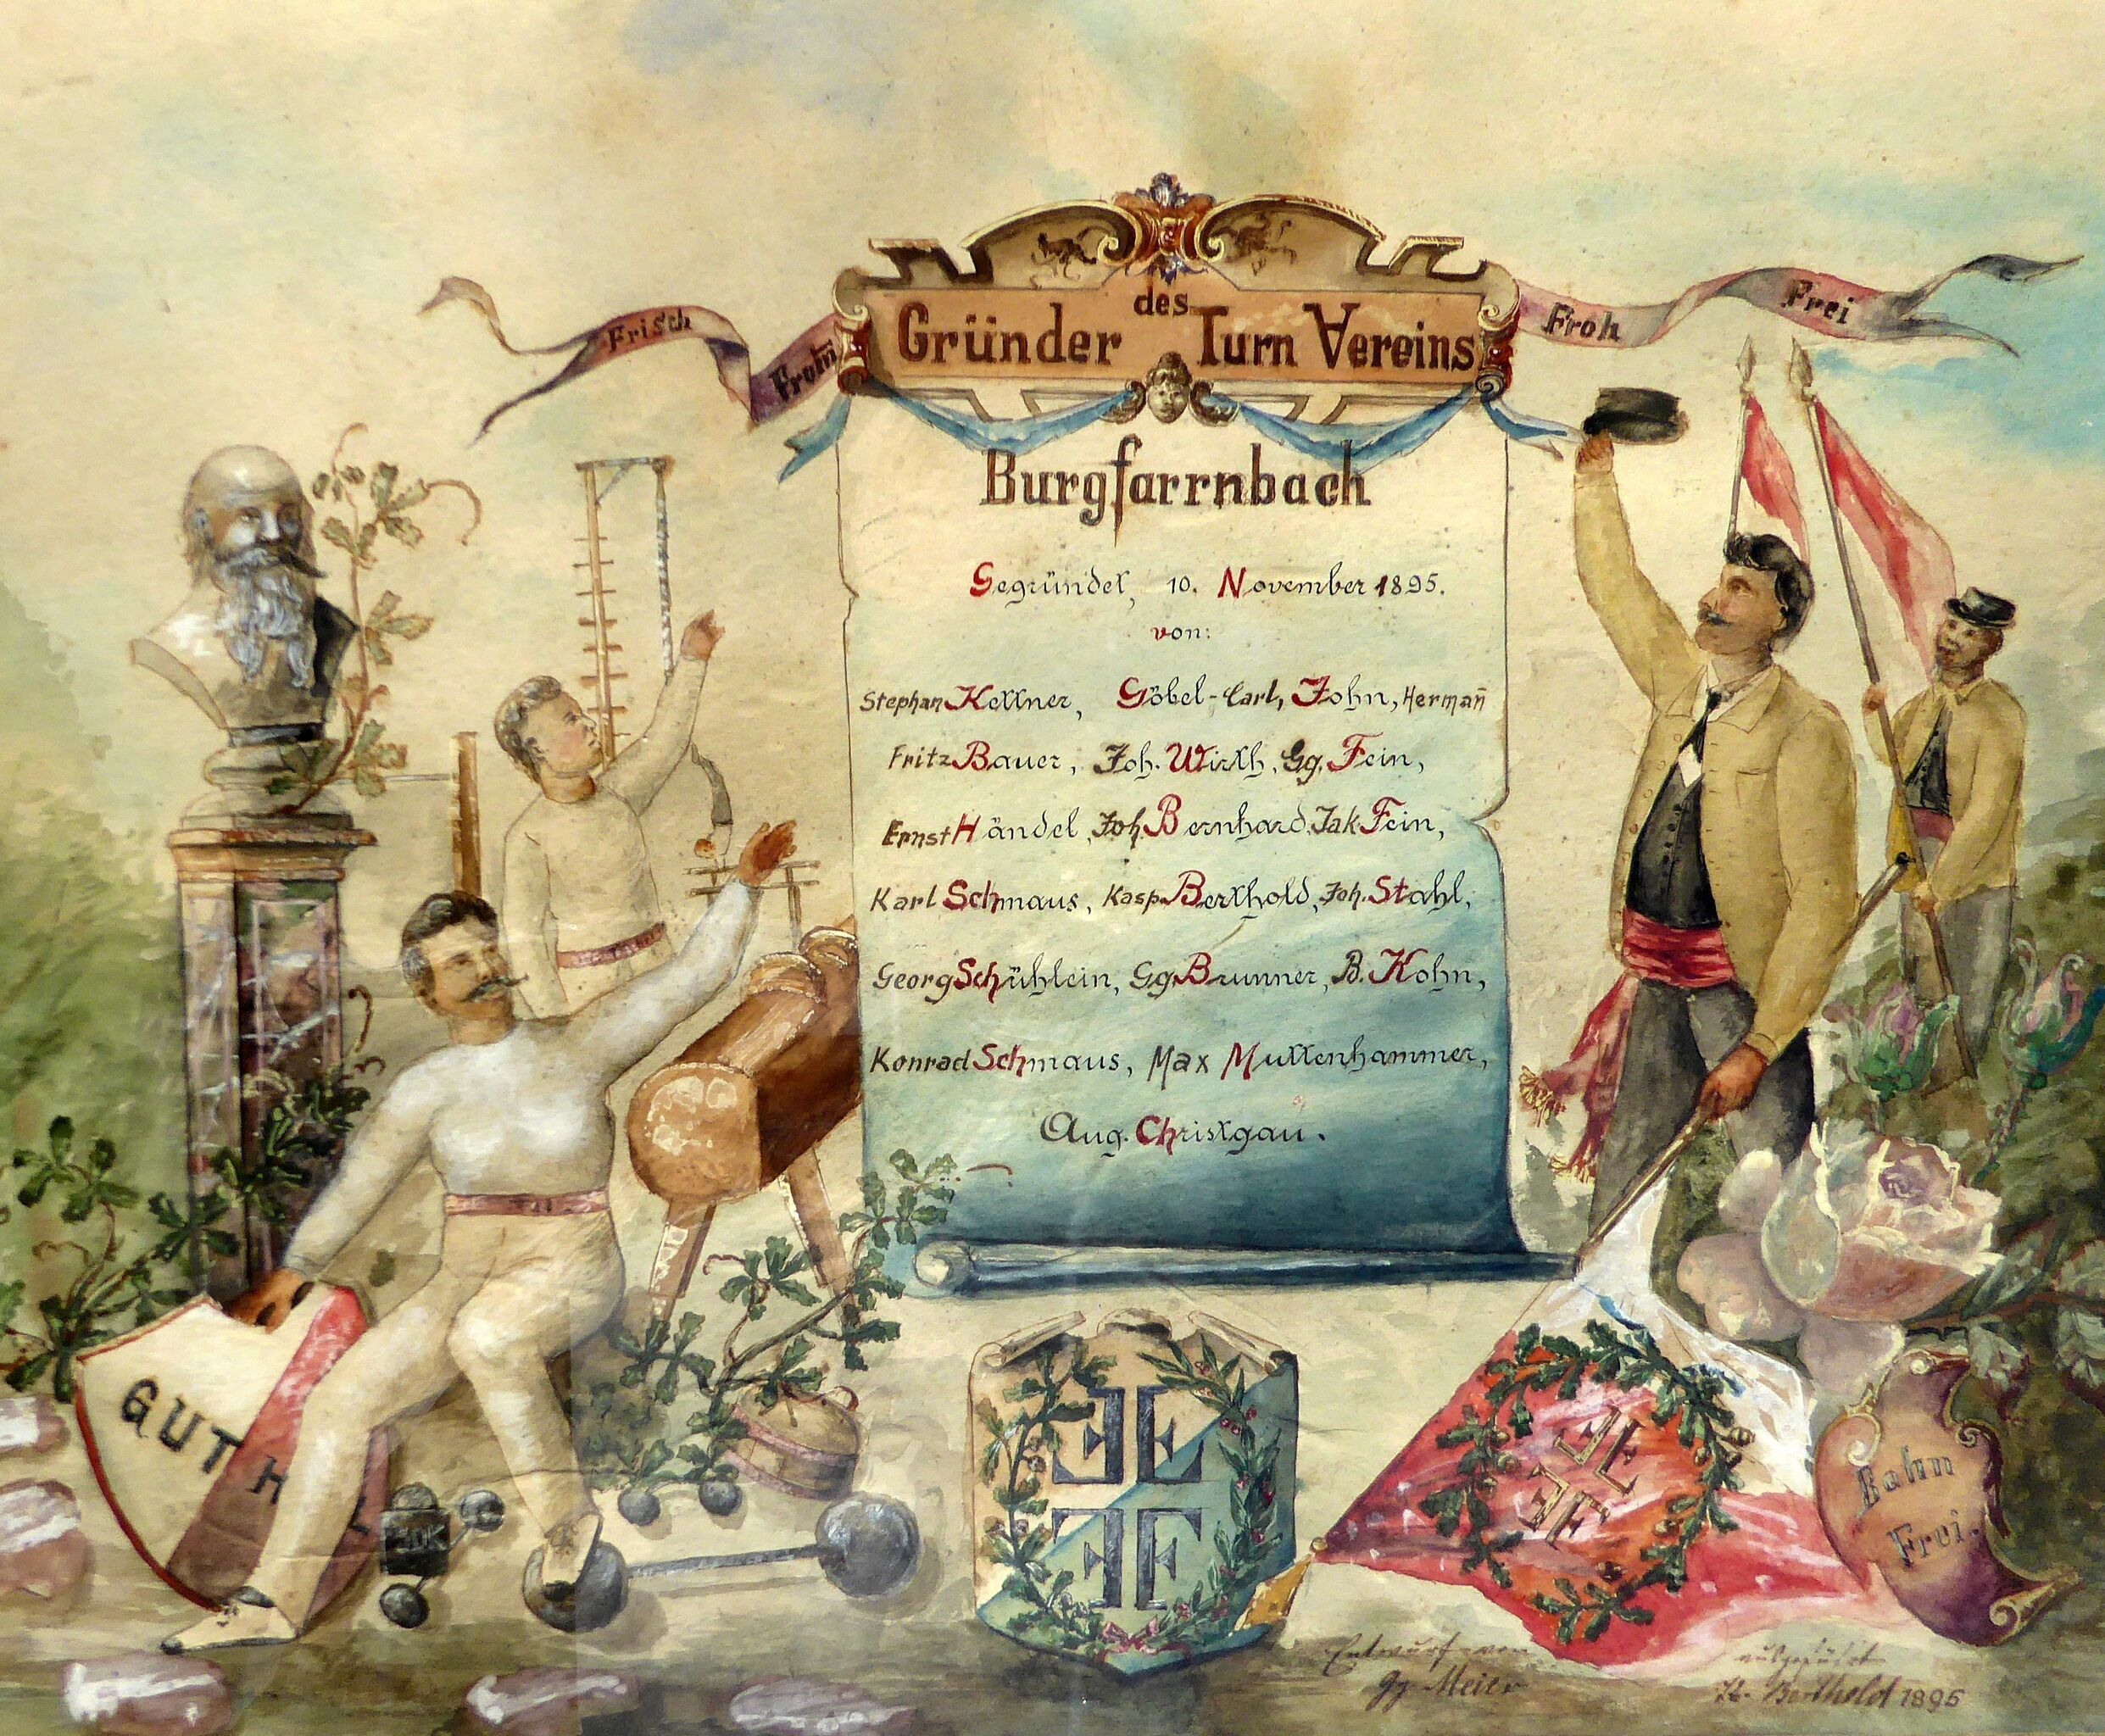 Frisch Fromm Froh Frei
Gründer des Turn Vereins
Burgfarrnbach
Gegründet, 10. November 1895.
von:
Stephan Kellner, Göbel-Carl, John, Hermañ
Fritz Bauer, Joh. Wirth, Gg. Fein,
Ernst Händel, Joh. Bernhard, Jak. Fein,
Karl Schmaus, Kasp. Berthold, Joh. Stahl,
Georg Schühlein, Gg. Brunner, B. Kohn,
Konrad Schmaus, Max Muttenhammer,
Aug. Christgau.
GUT H L
50K
FF
FF
FF
FF
Bahn
Frei.
Entwurf von
Gg. Meier
ausgeführt
K. Berthold 1895